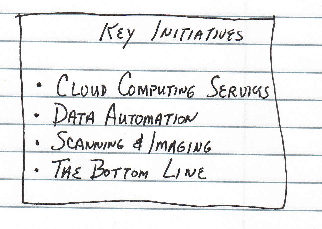 Key Initiatives
• Cloud Computing Services
• Data Automation
• Scanning & Imaging
• The Bottom Line